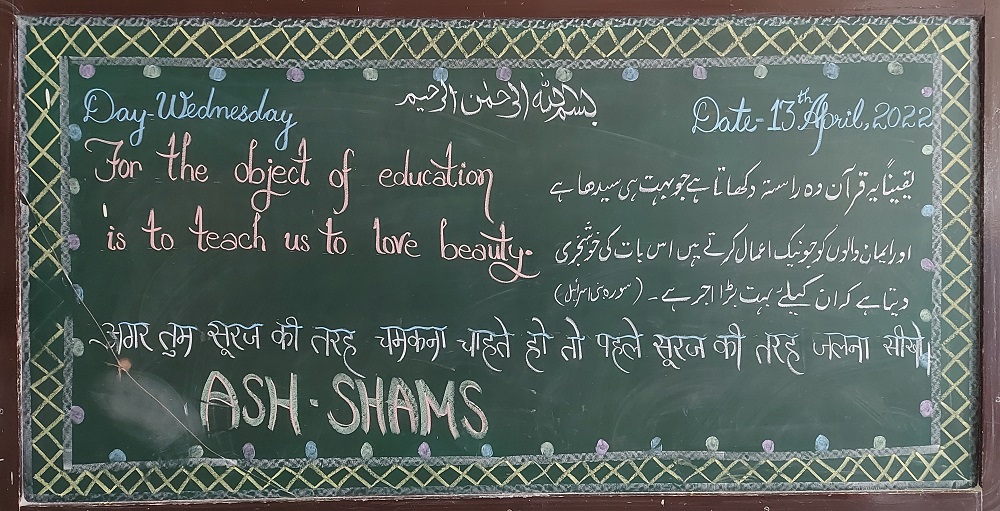 بسم اللہ الرحمٰن الرحیم
Day-Wednesday
Date-13th April, 2022
For the object of education
is to teach us to love beauty.
یقیناً یہ قرآن وہ راستہ دکھاتا ہے جو بہت ہی سیدھا ہے
اور ایمان والوں کو جو نیک اعمال کرتے ہیں اس بات کی خوشخبری
دیتا ہے کہ ان کیلئے بہت بڑا اجر ہے۔ (سورہ بنی اسرائیل)
अगर तुम सूरज की तरह चमकना चाहते हो तो पहले सूरज की तरह जलना सीखो।
ASH-SHAMS